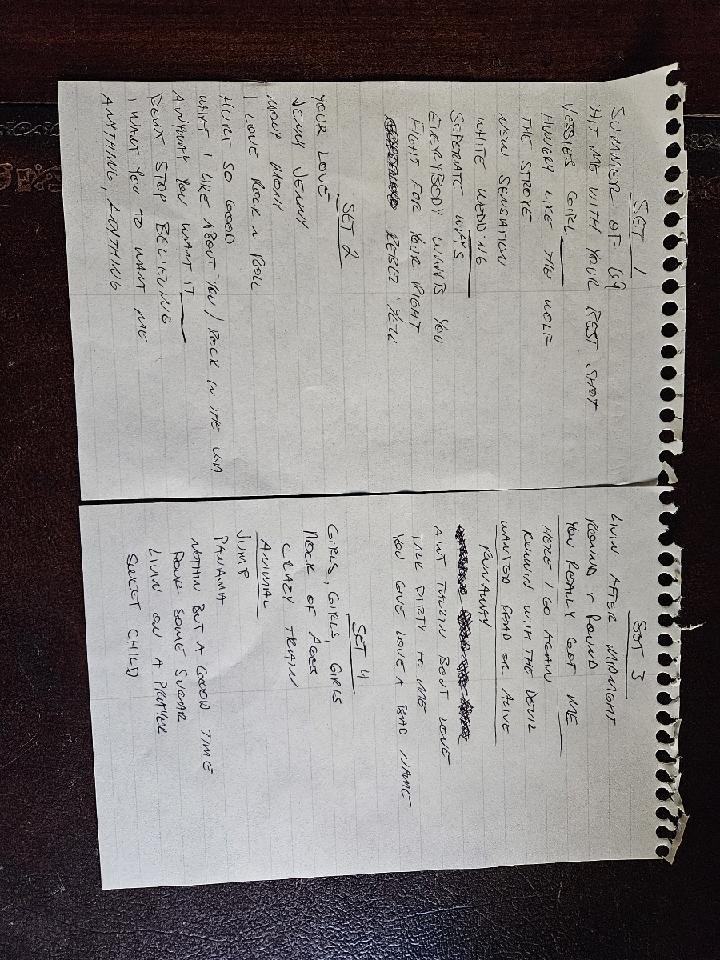 SET 1
SUMMER OF 69
HIT ME WITH YOUR BEST SHOT
JESSIES GIRL
HUNGRY LIKE THE WOLF
THE STROKE
NEW SENSATION
WHITE WEDDING
SEPERATE WAYS
EVERYBODY WANTS YOU
FIGHT FOR YOUR RIGHT
REBEL YELL
SET 2
YOUR LOVE
JENNY JENNY
MONY MONY
I LOVE ROCK N ROLL
HURT SO GOOD
WHAT I LIKE ABOUT YOU / ROCK IN THE USA
ANYWAY YOU WANT IT
DONT STOP BELIEVING
I WANT YOU TO WANT ME
ANYTHING, ANYTHING
SET 3
LIVIN AFTER MIDNIGHT
ROUND & ROUND
YOU REALLY GOT ME
HERE I GO AGAIN
RUNNIN WITH THE DEVIL
WANTED DEAD OR ALIVE
RUNAWAY
AINT TALKIN BOUT LOVE
TALK DIRTY TO ME
YOU GIVE LOVE A BAD NAME
SET 4
GIRLS, GIRLS GIRLS
ROCK OF AGES
CRAZY TRAIN
ANIMAL
JUMP
PANAMA
NOTHIN BUT A GOOD TIME
POUR SOME SUGAR
LIVIN ON A PRAYER
SWEET CHILD